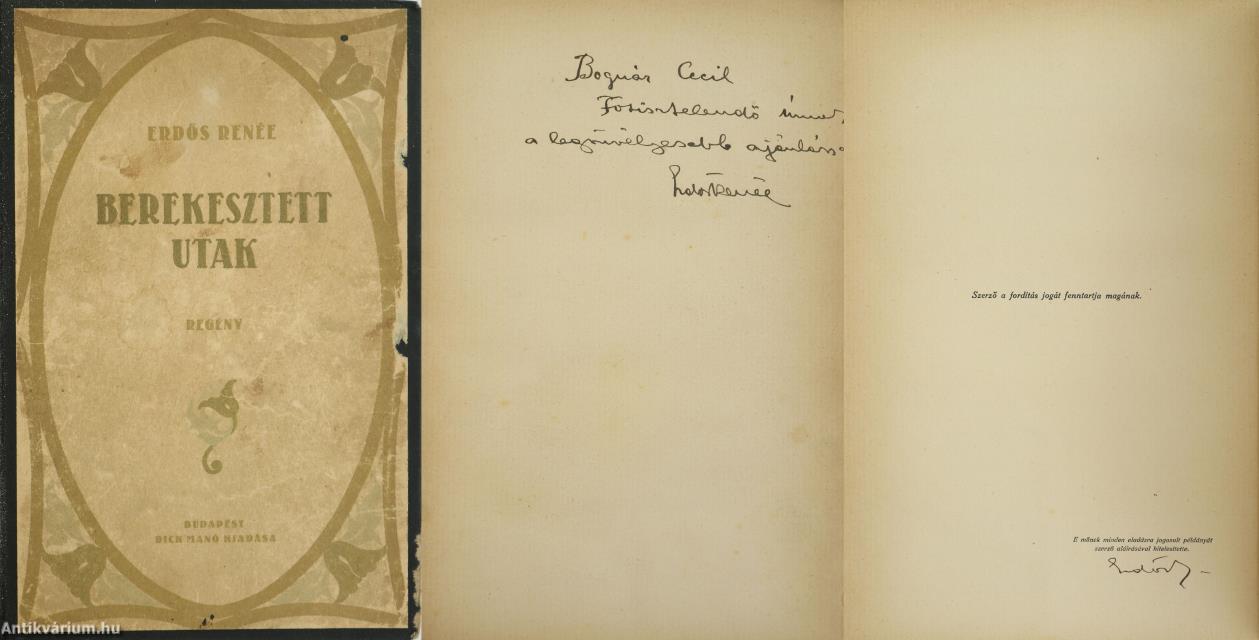 ERDŐS RENÉE
BEREKESZTETT
UTAK
REGÉNY
BUDAPEST
DICK MANÓ KIADÁSA
Antikvárium.hu
Bognár Cecil
Főtisztelendő Úrnak,
a legszívélyesebb ajánlássa
Erdős Renée
Szerző a fordítás jogát fenntartja magának.
E műnek minden eladásra jogosult példányát
szerző aláírásával hitelesítette.